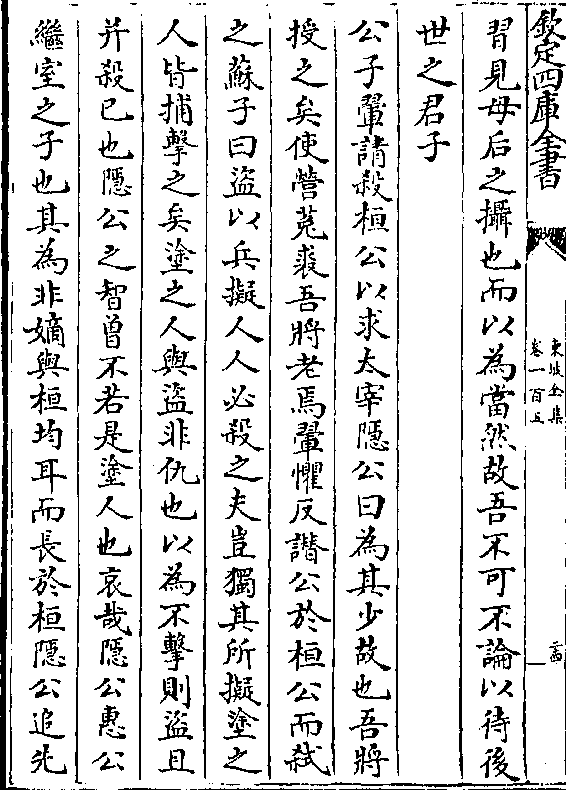 欽定四庫全書
東坡全集
卷一百五
習見母后之攝也而以為當然故吾不可不論以待後
世之君子
公子翬請殺桓公以求太宰隱公曰為其少故也吾將
授之矣使營菟裘吾將老焉翬懼反譖公於桓公而弑
之蘇子曰盜以兵擬人人必殺之夫豈獨其所擬塗之
人皆捕擊之矣塗之人與盜非仇也以為不擊則盜且
并殺已也隱公之智曾不若是塗人也哀哉隱公惠公
繼室之子也其為非嫡與桓均耳而長於桓隱公追先